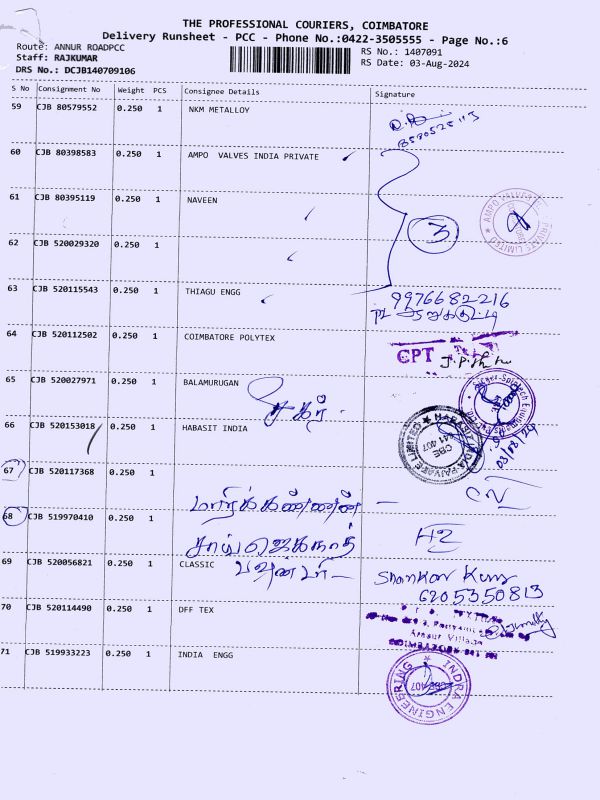 THE PROFESSIONAL COURIERS, COIMBATORE
Delivery Runsheet - PCC - Phone No.:0422-3505555 - Page No.:6
Route: ANNUR ROADPCC
RS No.: 1407091
Staff: RAJKUMAR
RS Date: 03-Aug-2024
DRS No.: DCJB140709106
S No Consignment No Weight PCS Consignee Details Signature
59 CJB 80579552 0.250 1 NKM METALLOY
60 CJB 80398583 0.250 1 AMPO VALVES INDIA PRIVATE
61 CJB 80395119 0.250 1 NAVEEN
3
62 CJB 520029320 0.250 1
63 CJB 520115543 0.250 1 THIAGU ENGG
9976682216
64 CJB 520112502 0.250 1 COIMBATORE POLYTEX
CPT
65 CJB 520027971 0.250 1 BALAMURUGAN
66 CJB 520153018 0.250 1 HABASIT INDIA
03/08/24
67 CJB 520117368 0.250 1
68 CJB 519970410 0.250 1
69 CJB 520056821 0.250 1 CLASSIC
Shankar
6205350813
70 CJB 520114490 0.250 1 DFF TEX
71 CJB 519933223 0.250 1 INDIA ENGG
INDRA ENGINEERING
CBE 407